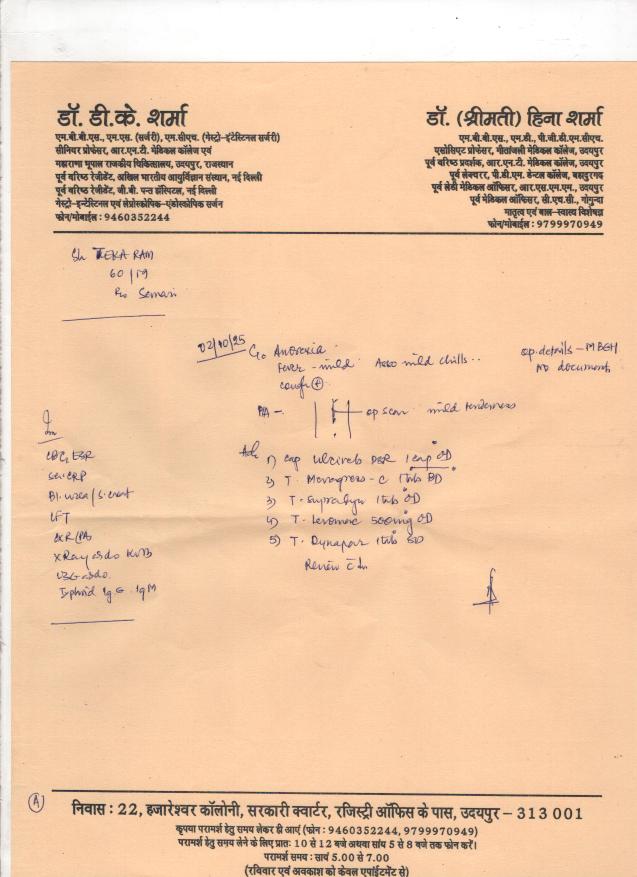 डॉ. डी.के. शर्मा
एम.बी.बी.एस., एम.एस. (सर्जरी), एम.सीएच. (गेस्ट्रो-इंटेस्टिनल सर्जरी)
सीनियर प्रोफेसर, आर.एन.टी. मेडिकल कॉलेज एवं
महाराणा भूपाल राजकीय चिकित्सालय, उदयपुर, राजस्थान
पूर्व वरिष्ठ रेजीडेंट, अखिल भारतीय आयुर्विज्ञान संस्थान, नई दिल्ली
पूर्व वरिष्ठ रेजीडेंट, जी.बी. पन्त हॉस्पिटल, नई दिल्ली
गेस्ट्रो-इन्टेस्टिनल एवं लेप्रोस्कोपिक-एंडोस्कोपिक सर्जन
फोन/मोबाईल : 9460352244
डॉ. (श्रीमती) हिना शर्मा
एम.बी.बी.एस., एम.डी., पी.जी.डी.एम.सीएच.
एसोसिएट प्रोफेसर, गीतांजली मेडिकल कॉलेज, उदयपुर
पूर्व वरिष्ठ प्रदर्शक, आर.एन.टी. मेडिकल कॉलेज, उदयपुर
पूर्व लेक्चरर, पी.डी.एम. डेन्टल कॉलेज, बहादुरगढ़
पूर्व लेडी मेडिकल ऑफिसर, आर.एस.एम.एम., उदयपुर
पूर्व मेडिकल ऑफिसर, सी.एच.सी., गोगुन्दा
मातृत्व एवं बाल-स्वास्थ्य विशेषज्ञ
फोन/मोबाईल : 9799970949
Sh TEKA RAM
60/
R/o Semari
02/10/25
C/o Anorexia
Fever - mild Asso mild chills..
cough ⊕
op. details - MBGH
no documents
P/A - op scar mild tenderness
Inv
CBC, ESR
Se. CRP
Bl. urea / S. creat
LFT
CXR/PA
X Ray abdo KUB
USG abdo.
Typhoid IgG IgM
Adv
1) Cap DSR 1 cap OD
2) T. - C 1 tab BD
3) T. 1 tab OD
4) T. 500mg OD
5) T. Dynapar 1 tab
Review c̄ Inv
A
निवास : 22, हजारेश्वर कॉलोनी, सरकारी क्वार्टर, रजिस्ट्री ऑफिस के पास, उदयपुर – 313 001
कृपया परामर्श हेतु समय लेकर ही आएं (फोन : 9460352244, 9799970949)
परामर्श हेतु समय लेने के लिए प्रातः 10 से 12 बजे अथवा सांय 5 से 8 बजे तक फोन करें।
परामर्श समय : सायं 5.00 से 7.00
(रविवार एवं अवकाश को केवल एपॉइंटमेंट से)